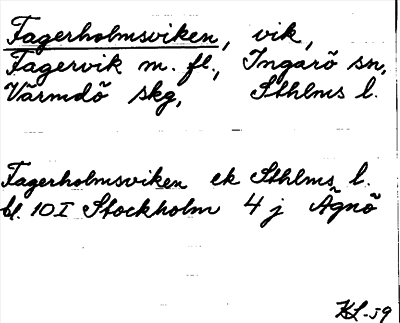 Fagerholmsviken, vik,
Fagervik m. fl., Ingarö sn,
Värmdö skg, Sthlms l.
Fagerholmsviken ek Sthlms l.
bl. 10I Stockholm 4 j Ägnö
KL-59